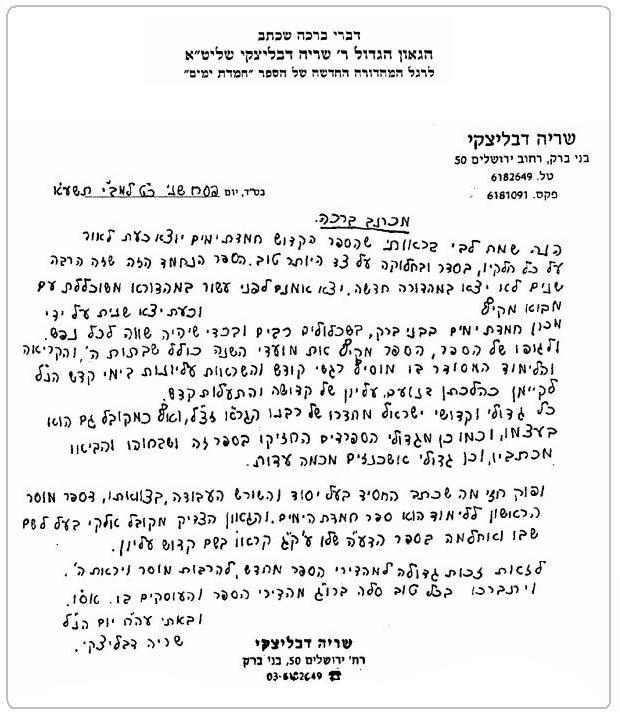 דברי ברכה שכתב
הגאון הגדול ר' שריה דבליצקי שליט"א
לרגל המהדורה החדשה של הספר "חמדת ימים"
שריה דבליצקי
בני ברק, רחוב ירושלים 50
טל. 6182649
פקס. 6181091
בס"ד, יום פסח שני כ"ט למב"י תשע"א
מכתב ברכה.
הנה שמח לבי בראותי שהספר הקדוש חמדת ימים יוצא כעת לאור
על כל חלקיו, בסדר ובחלוקה על צד היותר טוב. הספר הנחמד הזה שזה הרבה
שנים לא יצא במהדורה חדשה. יצא אמנם לפני עשור במהדורא משוכללת עם
מבוא מקיף וכעת יצא שנית על ידי
מכון חמדת ימים בבני ברק, בשכלולים רבים ובכדי שיהיה שווה לכל נפש.
ולגופו של הספר, הספר מקיף את מועדי השנה כולל שבתות ה', והקריאה
והלימוד המסודר בו מוסיף רגשי קודש והשראות עליונות בימי קדש הנ"ל
לקיימן כהלכתן בנועם עליון של קדושה והתעלות קדש.
כל גדולי וקדושי ישראל מחדרו של רבנו הגר"א זצ"ל, ואף כמקובל גם הוא
בעצמו, וכמו כן מגדולי הספרדים החזיקו בספר זה ושבחוהו והביאו
מכתביו, וכן גדולי אשכנזים מכמה עדות.
ופוק חזי מה שכתב החסיד בעל יסוד ושורש העבודה, בצוואתו, דספר מוסר
הראשון ללימוד הוא ספר חמדת הימים. והגאון הצדיק מקובל אלקי בעל לשם
שבו ואחלמה בספר הדע"ה שלו קראו בשם קדוש עליון.
לזאת זכות גדולה למהדירי הספר מחדש, להרבות מוסר ויראת ה'.
ויתברכו בכל טוב סלה ברו"ג מהדירי הספר והעוסקים בו. אס"ו.
ובאתי עה"ח יום הנ"ל
שריה דבליצקי.
שריה דבליצקי
רח' ירושלים 50, בני ברק
☎ 03-6182649